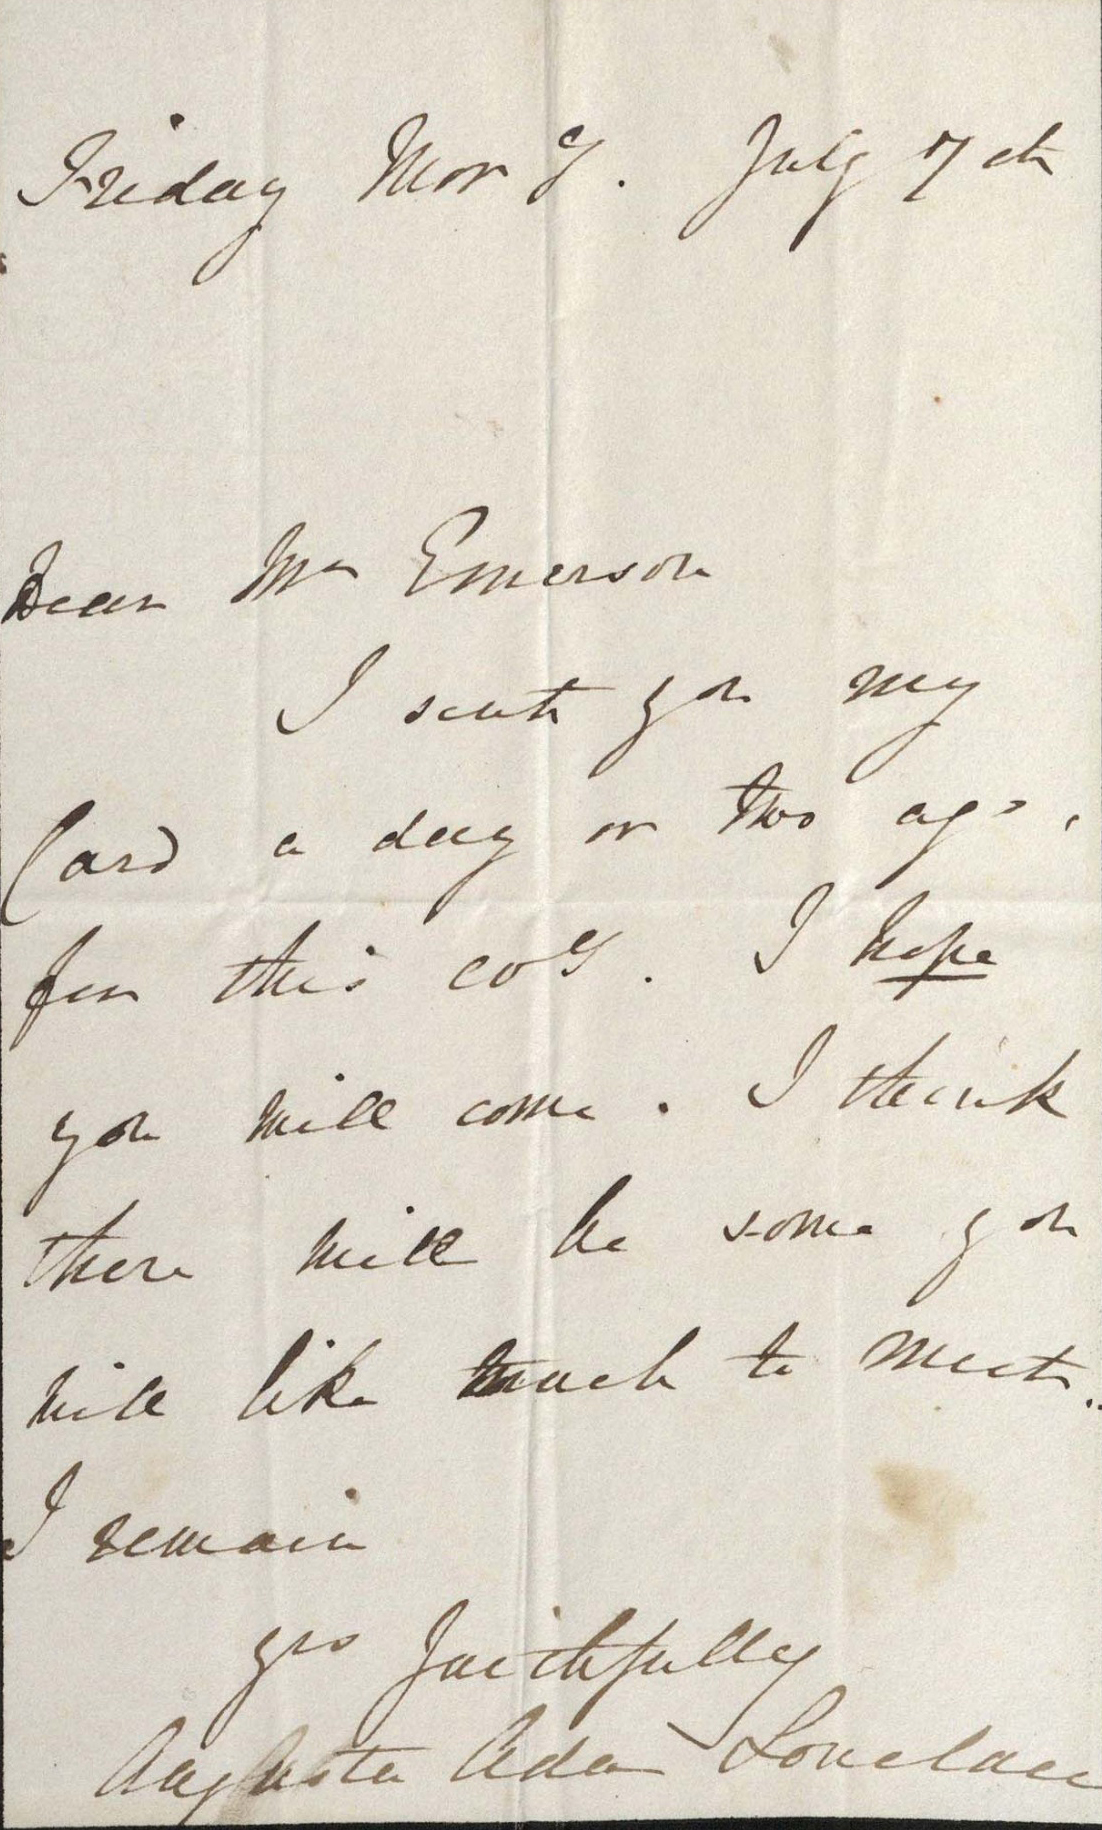 Friday Mor g. July 7th
Dear Mr Emerson
I sent you my
Card a day or two ago,
for this evg. I hope
you will come. I think
there will be some you
will like much to meet.
I remain
yrs faithfully
Augusta Ada Lovelace